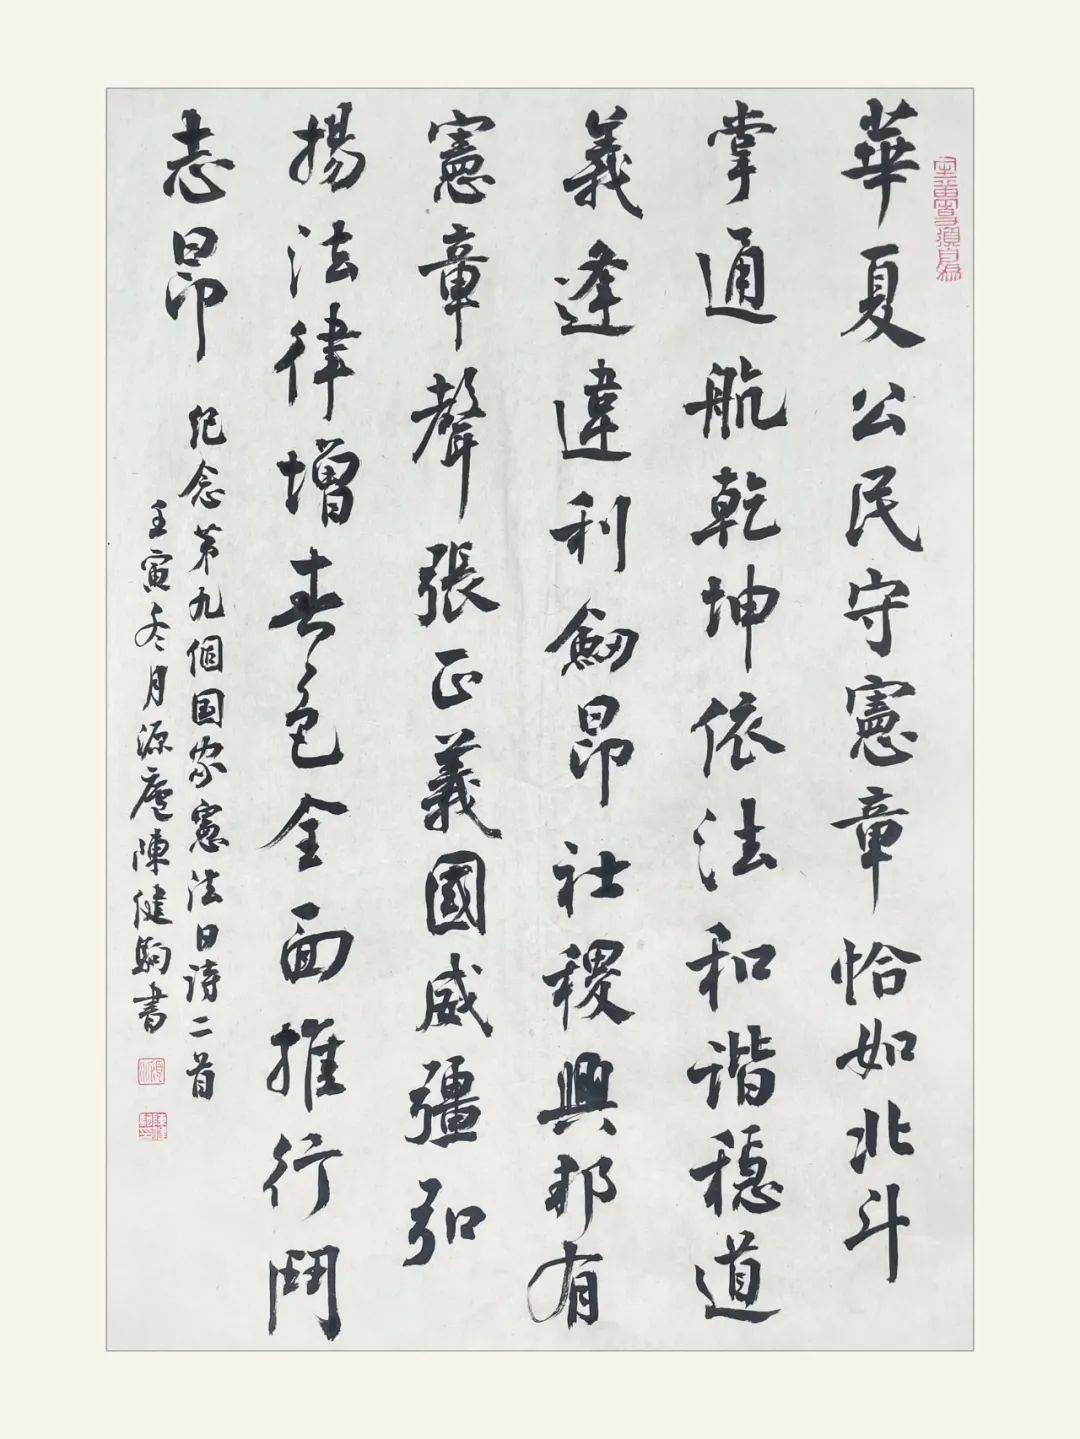 華夏公民守憲章恰如北斗
掌通航乾坤依法和谐穏道
義逢違利劒昂社稷興邦有
憲章聲張正義國威彊弘
揚法律增春色全面推行鬥
志昂
纪念第九個国家憲法日诗二首
壬寅冬月源廬陳健駒書